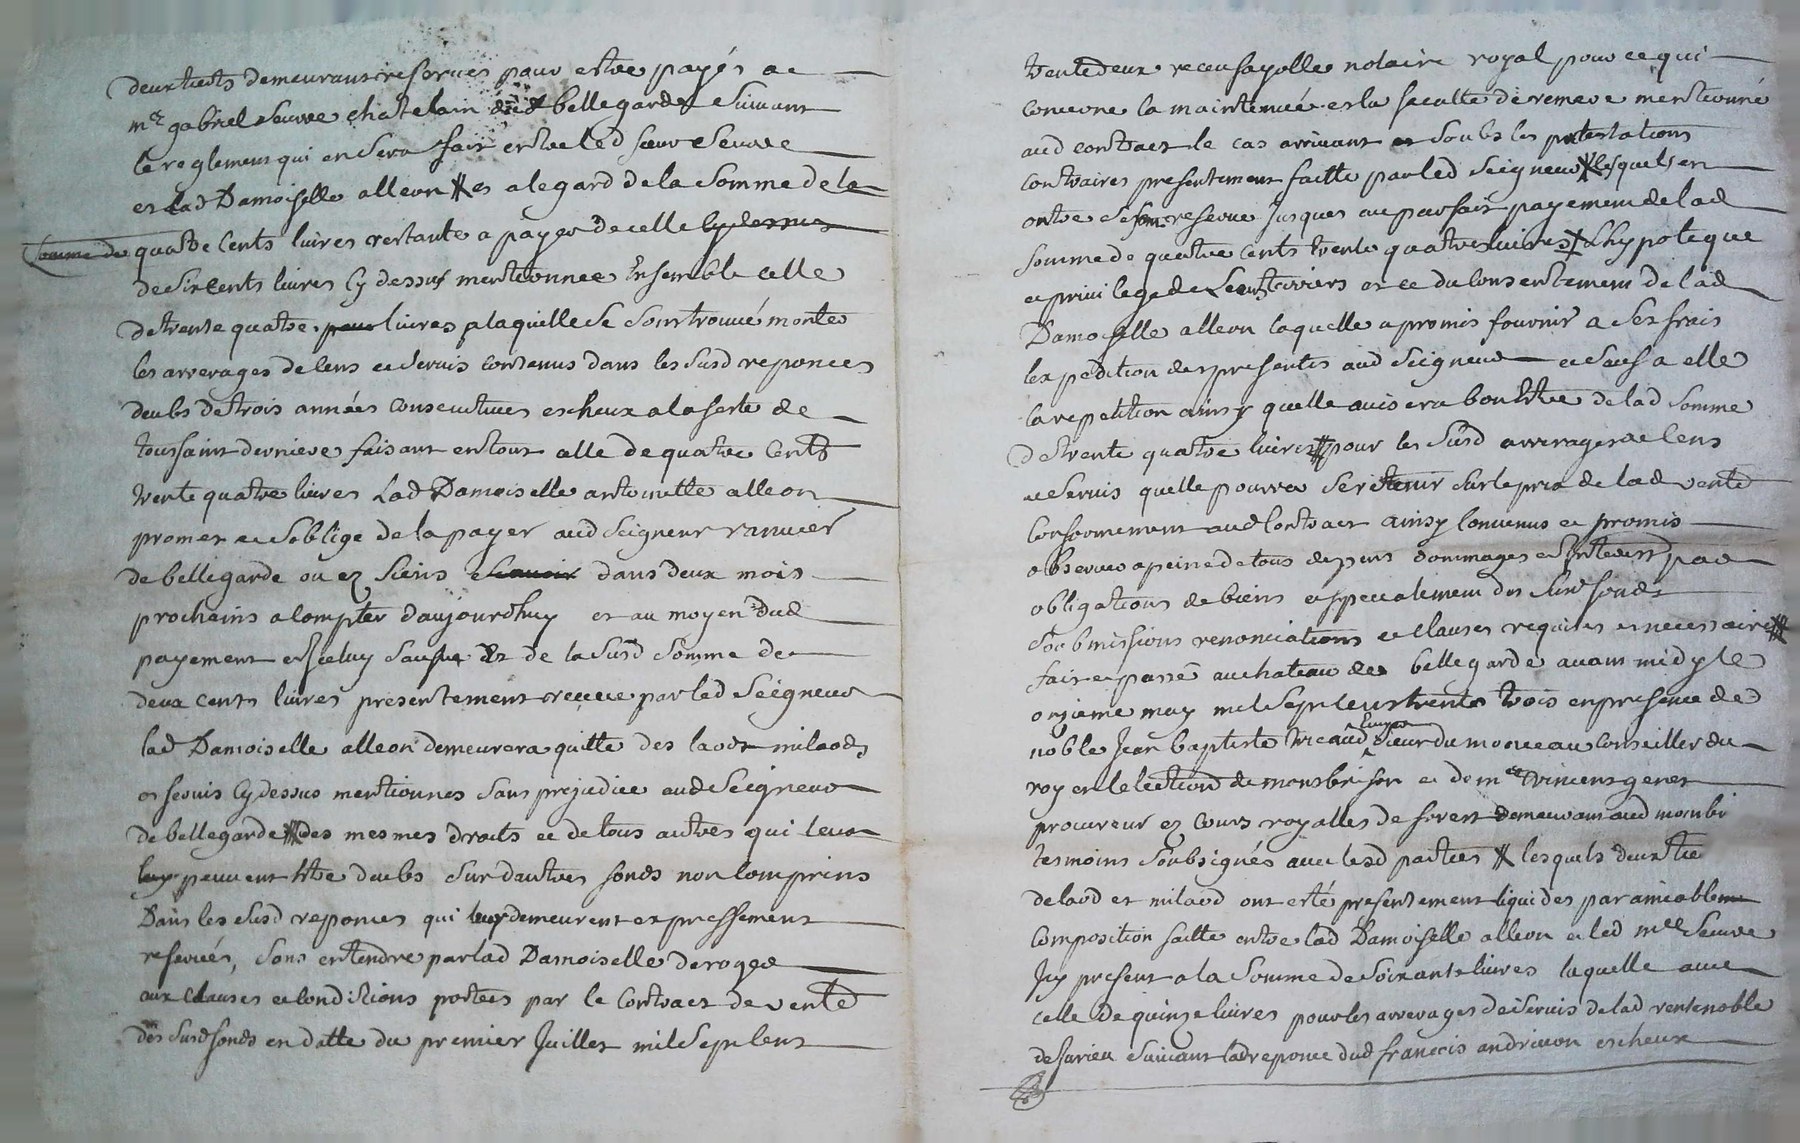 deux tiers demeurants reservés pour estre payés a
mre gabriel Seuvre chatelain dud bellegarde Suivant
le reglement qui en Sera fait entre led Sieur Seuvre
et lad Damoiselle alleon # et a legard de la Somme de la
Somme de quatre Cents livres restante a payer de celle cy dessus
de Six Cents livres Cy dessus mentionnee Ensemble celle
de trente quatre pour livres a laquelle Se Sont trouvé montés
les arrerages de Cens et Servis contenus dans les Susd reponces
deubs de trois années consecutives escheux a la feste de
toussaint derniere faisant en tout celle de quatre Cents
trente quatre livres Lad Damoiselle antoinette alleon
promet et Soblige de la payer aud Seigneur
de bellegarde ou es Siens Scavoir dans deux mois
prochains a Compter daujourdhuy et au moyen dud
payement et de la Susd Somme de
deux cents livres presentement receue par led Seigneur
lad Damoiselle alleon demeurera quitte des laods milaods
et Servis Cy dessus mentionnes Sans prejudice aud Seigneur
de bellegarde # des mesmes droits et de tous autres qui leur
luy peuvent Etre deubs Sur dautres fonds non Comprins
Dans les Susd reponces qui luy demeurent expressement
reservés, Sans entendre par lad Damoiselle deroger
aux Clauses et Conditions portees par le Contract de vente
des Susd fonds en datte du premier Juillet mil Sept Cent
trente deux receu fayolle notaire royal pour ce qui
concerne la maintenue et la faculté de remere mentionné
aud contract le cas arrivant et Soubs les protestations
contraires presentement faitte par led Seigneur # lesquels en
outre Se reserve Jusques au parfait payement de lad
Somme de quatre Cents trente quatre livres # Lhypoteque
et privilege de et ce du Consentement de lad
Damoiselle alleon laquelle a promis fournir a Ses frais
lexpedition des presentes aud Seigneur et Sauf a elle
la repetition ainsy quelle avisera bon Etre de lad Somme
de trente quatre livres # pour les Susd arrerages de Cens
et Servis quelle pourra Se retenir Sur le prix de lad vente
Conformement aud Contract ainsy Convenus et promis
observer a peine de tous despens dommages et Interests par
obligations de biens et Speecialement des Susd fonds
Soubmissions renonciations et Clauses requises et necessaires #
fait et passé au chateau de bellegarde avant midy le
onzieme may mil Sept Cent trente trois en presence de
noble Jean baptiste Ecuyer Sieur du morceau Conseiller du
roy en lelection de montbrison et de mre vincent genet
procureur es Cours royalles de forest demeurant aud montbr
tesmoins Soubsignés avec lesd parties # lesquels deux tiers
de laod et milaod ont esté presentement liquidés par amicable
Composition faitte entre lad Damoiselle alleon et led mre Seuvre
Icy present a la Somme de Soixante livres laquelle avec
celle de quinze livres pour les arrerages de Servis de lad rente noble
de Surieu Suivant lad reponce dud francois andrivon escheux